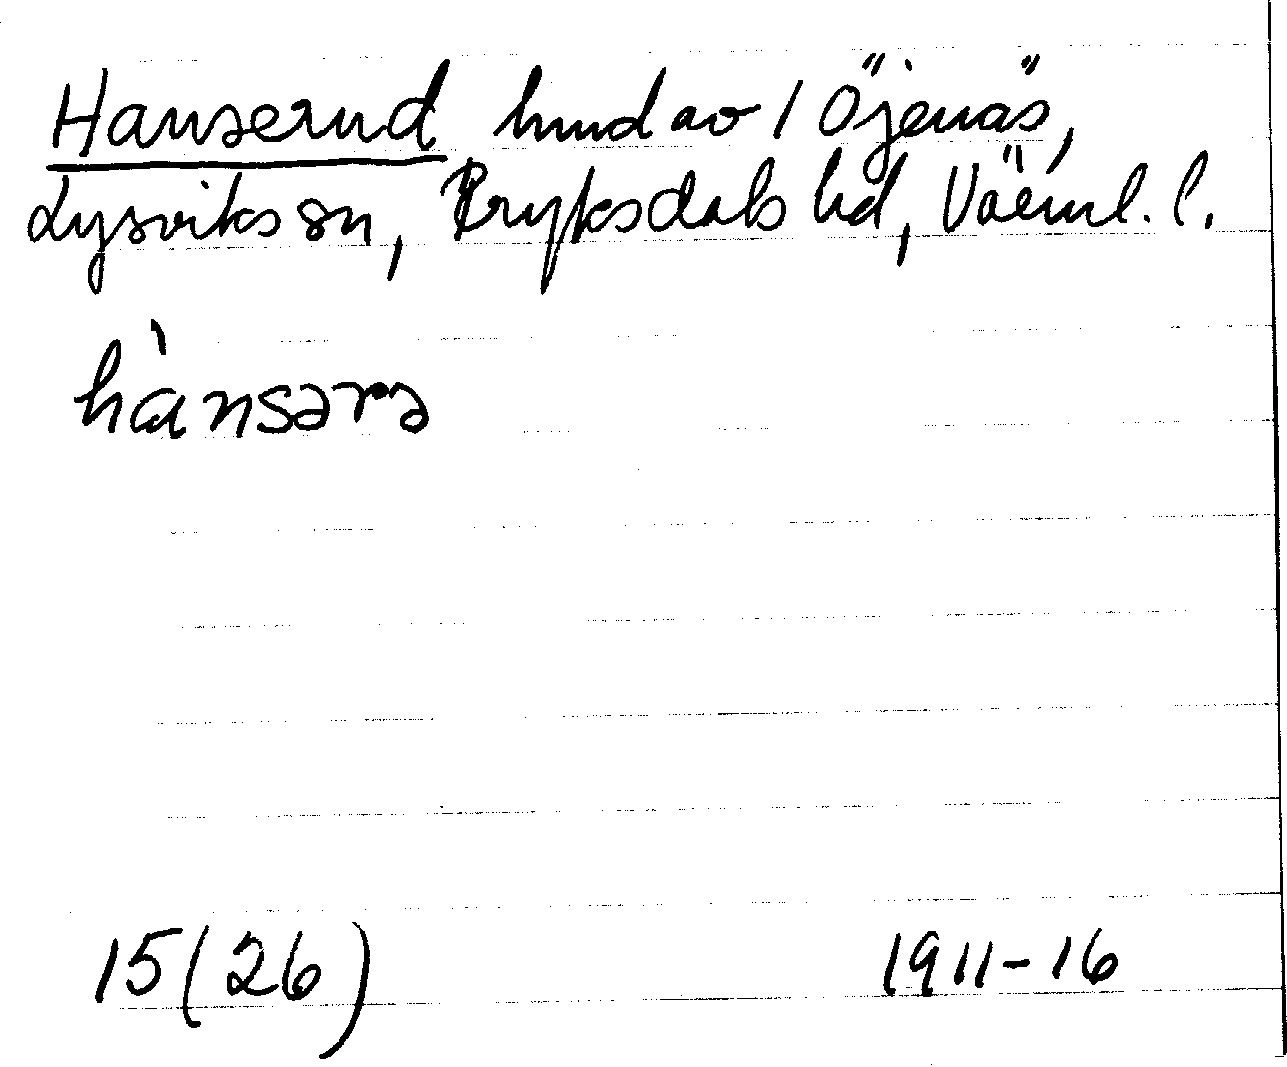 Hanserud hmd av 1 Öjenäs,
Lysviks sn, Fryksdals hd, Värml. l.
hànsərə
15(26) 1911-16